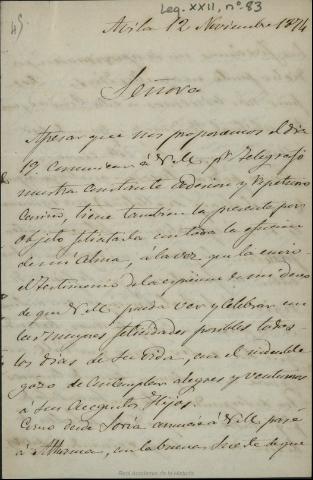 45
Leg. XXII, nº 83
Avila 12 Noviembre 1874
Señora
Apesar que nos proponemos el dia
19. comunicar á V.M. pr. Telegrafo
nuestra constante adhesion y respetuoso
Cariño, tiene tambien la presente por
objeto felicitarla con toda la efusion
de mi Alma, á la vez que la envio
el testimonio de la espresion de mis deseos
de que V.M. pueda ver y celebrar con
las mayores felicidades posibles todos
los dias de Su vida, con el indecible
gozo de contemplar alegres y venturosos
á Sus Excelsos Hijos.
Como desde Soria anuncié á V.M. pasé
á Alhama, con la buena suerte de que
Real Academia de la Historia